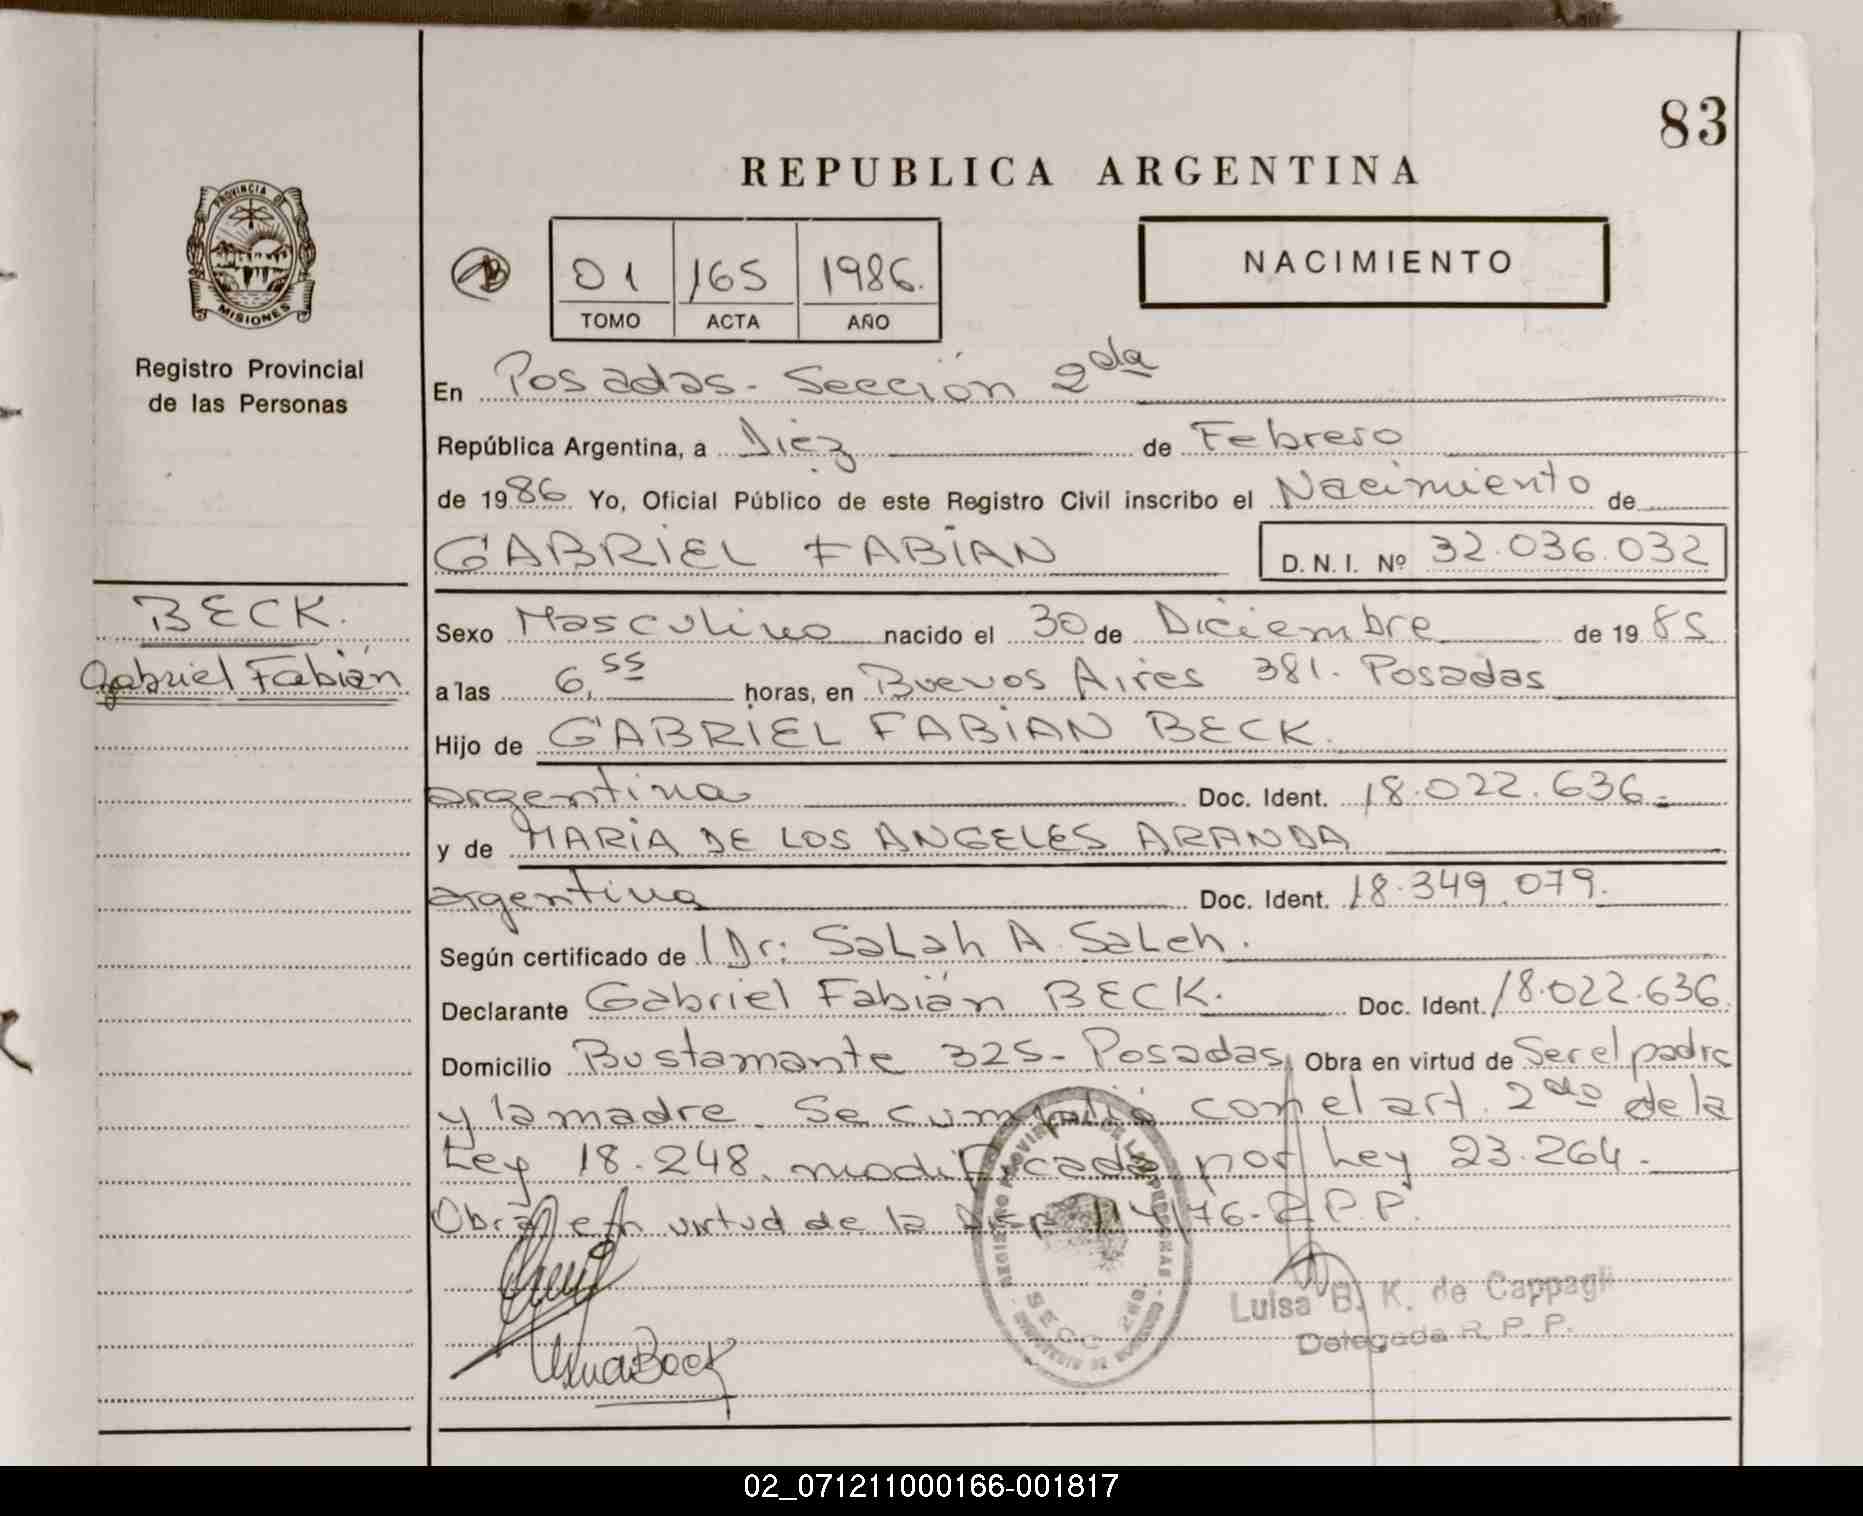 83
REPUBLICA ARGENTINA
PROVINCIA DE
MISIONES
Registro Provincial
de las Personas
01 165 1986.
TOMO ACTA AÑO
NACIMIENTO
En Posadas - Sección 2da
República Argentina, a Diez de Febrero
de 1986 Yo, Oficial Público de este Registro Civil inscribo el Nacimiento de
GABRIEL FABIAN D. N. I. Nº 32.036.032
BECK.
Gabriel Fabián
Sexo Masculino nacido el 30 de Diciembre de 1985
a las 6,55 horas, en Buenos Aires 381. Posadas
Hijo de GABRIEL FABIAN BECK.
argentina Doc. Ident. 18.022.636.=
y de MARIA DE LOS ANGELES ARANDA
argentina Doc. Ident. 18.349.079.
Según certificado de Dr: Salah A. Saleh.
Declarante Gabriel Fabián BECK. Doc. Ident. 18.022.636
Domicilio Bustamante 325- Posadas, Obra en virtud de Ser el padre
y la madre. Se cumplió con el art. 2do de la
Ley 18.248, modificada por Ley 23.264.
Obra en virtud de la Disp 114/76-R.P.P.
REGISTRO PROVINCIAL DE LAS PERSONAS
SECC 2da
Luisa B. K. de Cappagli
Delegada R. P. P.
Beck
02_071211000166-001817